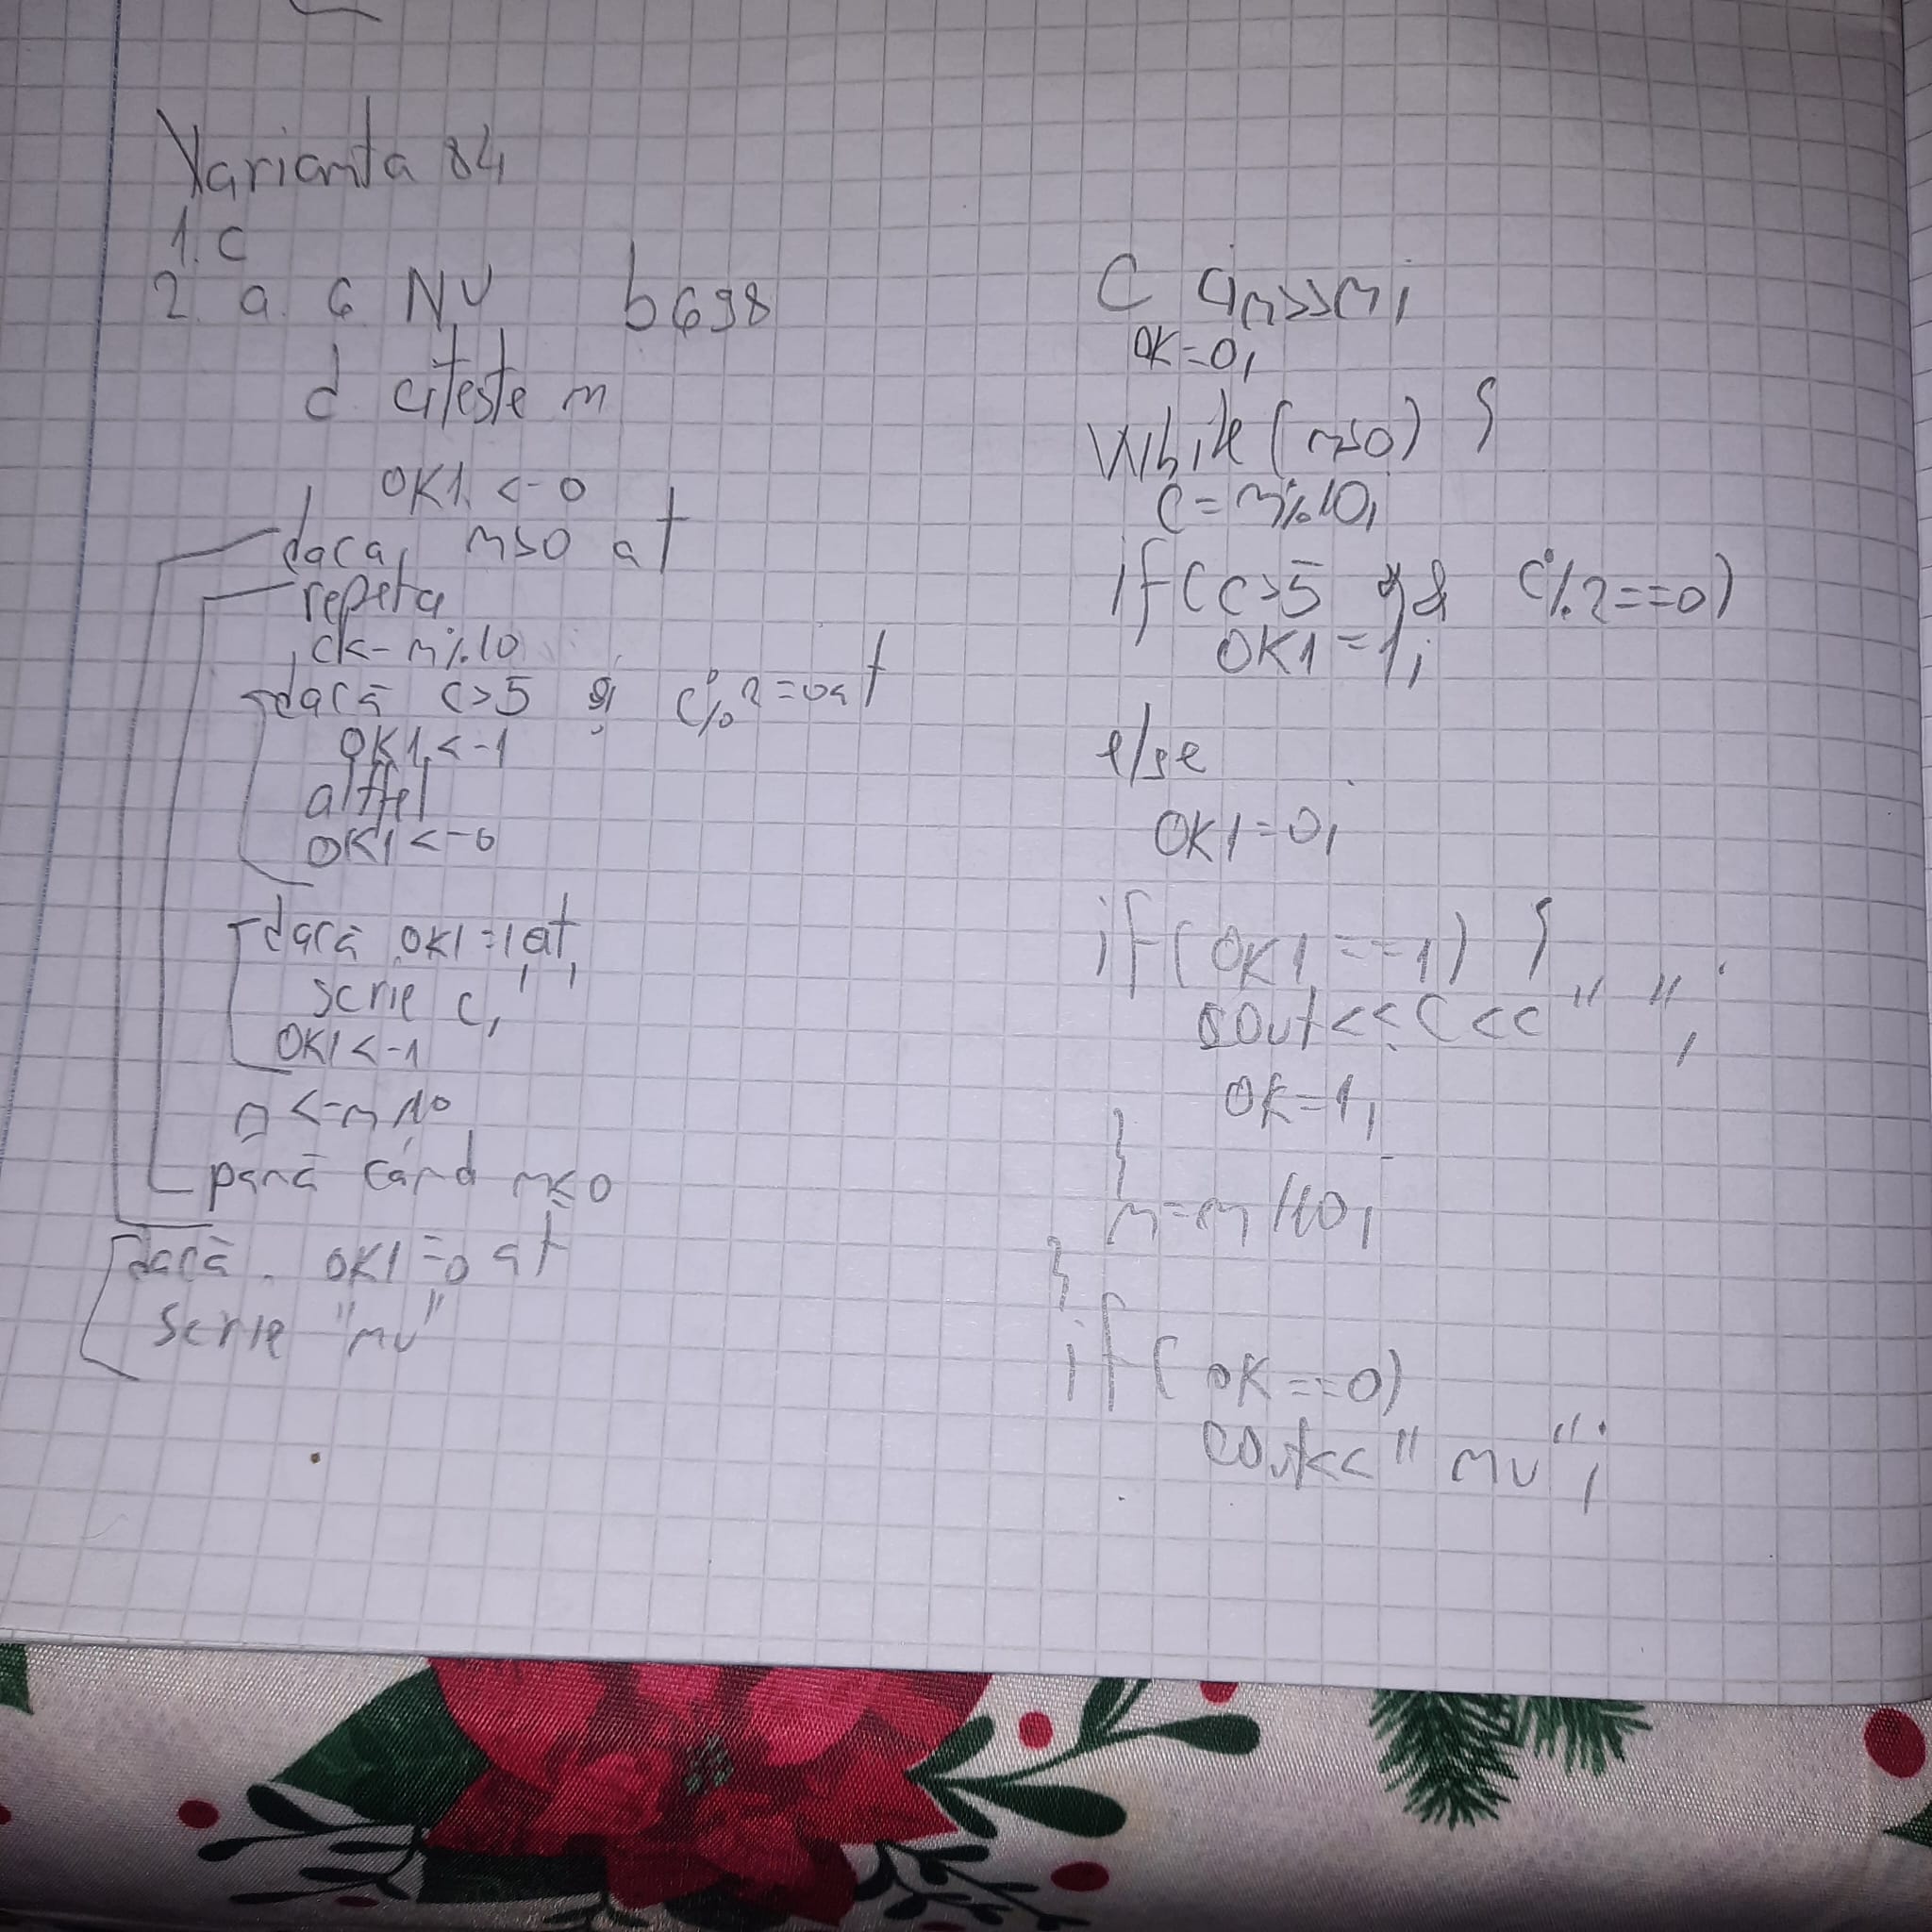 Varianta 84
1. c
2. a. 6 NU b 698
d. citeste n
OK1 <- 0
daca n>0 at
repeta
c<- n%10
dacă c>5 și c%2=0 at
OK1 <-1
altfel
OK1 <-0
dacă OK1=1 at
scrie c, ' '
OK1 <-1
n <- n/10
până când n≤0
dacă OK1=0 at
scrie "nu"
C cin>>n;
OK=0;
While (n>0) {
c=n%10;
if(c>5 && c%2==0)
OK1=1;
else
OK1=0;
if(OK1==1) {
cout<<c<<" ";
OK=1;
}
n=n/10;
}
if(OK==0)
cout<<"nu";